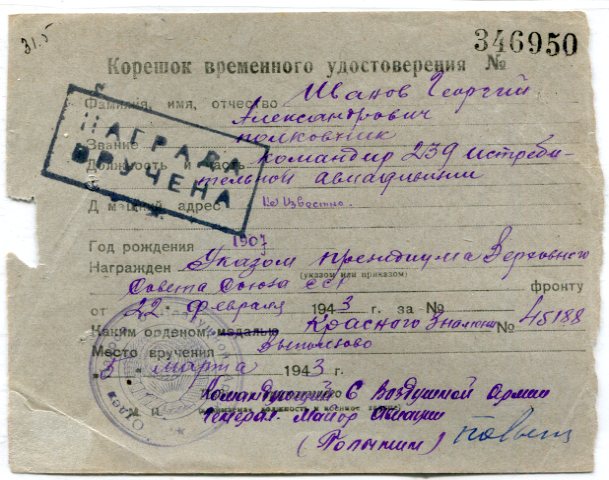 31.5
346950
Корешок временного удостоверения №
Фамилия, имя, отчество Иванов Георгий
Александрович
Звание полковник
НАГРАДА
ВРУЧЕНА
Должность и часть командир 239 истреби-
тельной авиадивизии
Домашний адрес Не известно.
Год рождения 1907
Награжден Указом президиума Верховного
(указом или приказом)
Совета Союза ССР фронту
от 22 февраля 1943 г. за №
Каким орденом, медалью Красного Знамени № 45188
Место вручения Выползово
3 марта 1943 г.
Командующий 6 Воздушной Армии
Генерал-Майор Авиации
(Полынин)